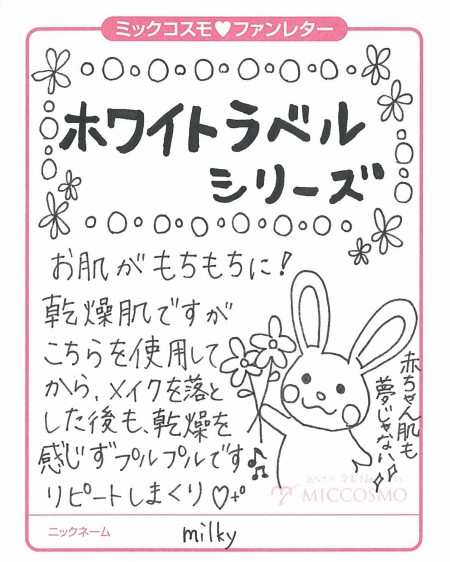 ミックコスモ♥ファンレター
ホワイトラベル
シリーズ
お肌がもちもちに!
乾燥肌ですが
こちらを使用して
から、メイクを落と
した後も、乾燥を
感じずプルプルです
リピートしまくり♡
赤ちゃん肌も
夢じゃない
MICCOSMO
ニックネーム
milky